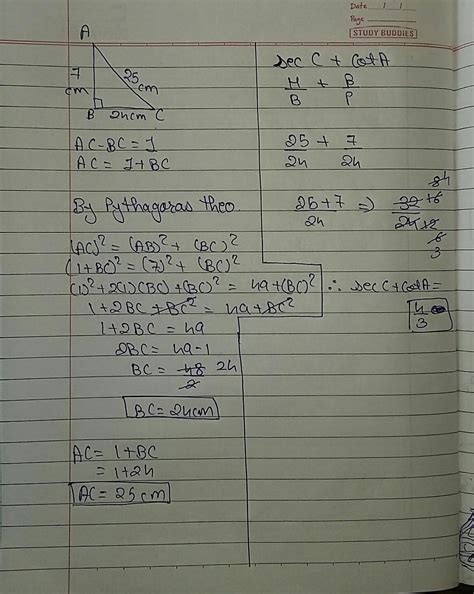 Date / /
Page
STUDY BUDDIES
A
7
cm
25
cm
B
24cm
C
AC-BC = 1
AC = 1+BC
By Pythagoras theo.
(AC)² = (AB)² + (BC)²
(1+BC)² = (7)² + (BC)²
(1)² + 2(1)(BC) + (BC)² = 49 + (BC)²
1 + 2BC + BC² = 49 + BC²
1 + 2BC = 49
2BC = 49-1
BC = 48/2 24
BC = 24cm
AC = 1 + BC
= 1+24
AC = 25 cm
sec C + Cot A
H/B + B/P
25/24 + 7/24
25+7/24 ⇒ 32/24
∴ sec C + Cot A =
4/3